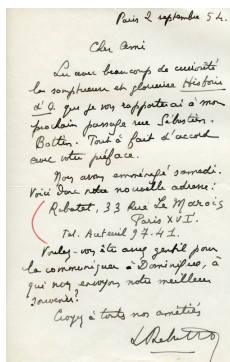 Paris 2 septembre 54.
Cher Ami
Lu avec beaucoup de curiosité
la somptueuse et glorieuse Histoire
d'O. que je vous rapporterai à mon
prochain passage rue Sébastien-
Bottin. Tout à fait d'accord
avec votre préface.
Nous avons emménagé samedi.
Voici donc notre nouvelle adresse:
Rebatet, 33 Rue Le Marois
Paris XVI.
Tel. Auteuil 97-41.
Voulez-vous être assez gentil pour
la communiquer à Dominique, à
qui nous envoyons notre meilleur
souvenir?
Croyez à toutes nos amitiés
L Rebatet